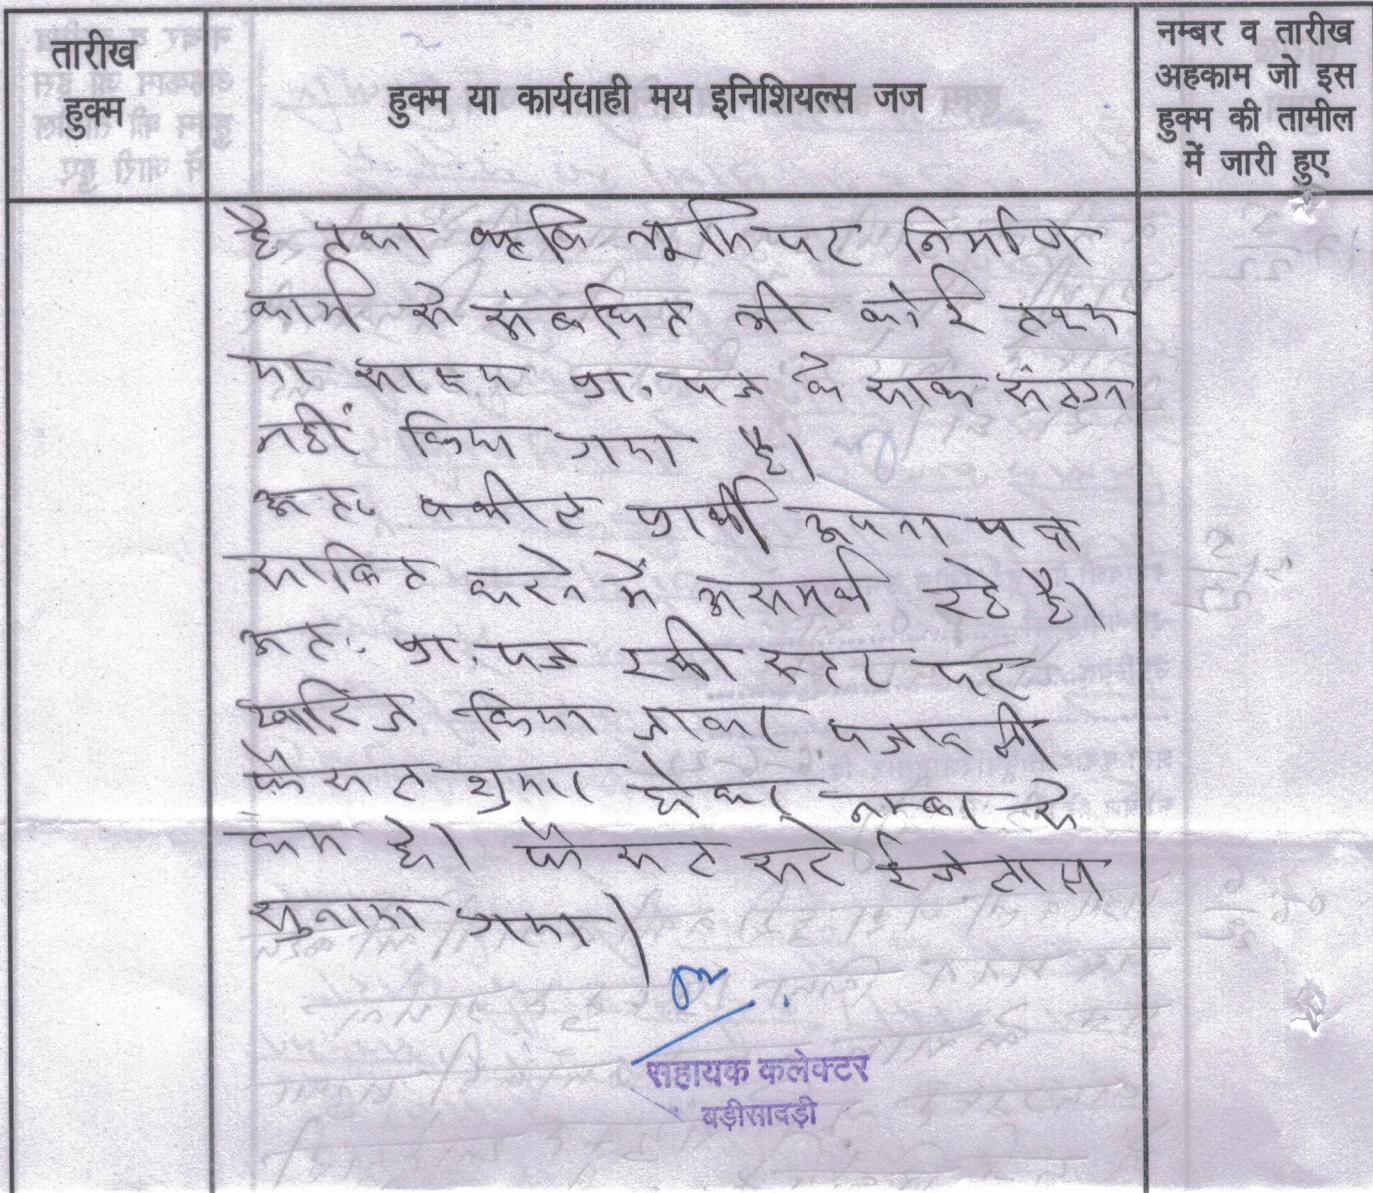 तारीख
हुक्म
हुक्म या कार्यवाही मय इनिशियल्स जज
नम्बर व तारीख
अहकाम जो इस
हुक्म की तामील
में जारी हुए
है तथा कृषि भूमि पर निर्माण
कार्य से संबंधित भी कोई तथ्य
या साक्ष्य प्रा. पत्र के साथ संलग्न
नहीं किया गया है।
अतः वकील प्रार्थी अपना पक्ष
साबित करने में असमर्थ रहे है।
अतः प्रा. पत्र इसी स्तर पर
खारिज किया जाकर पत्रावली
फैसल शुमार होकर नम्बर से
कम हो। फैसला सरे ईजलास
सुनाया गया।
सहायक कलेक्टर
बड़ीसादड़ी